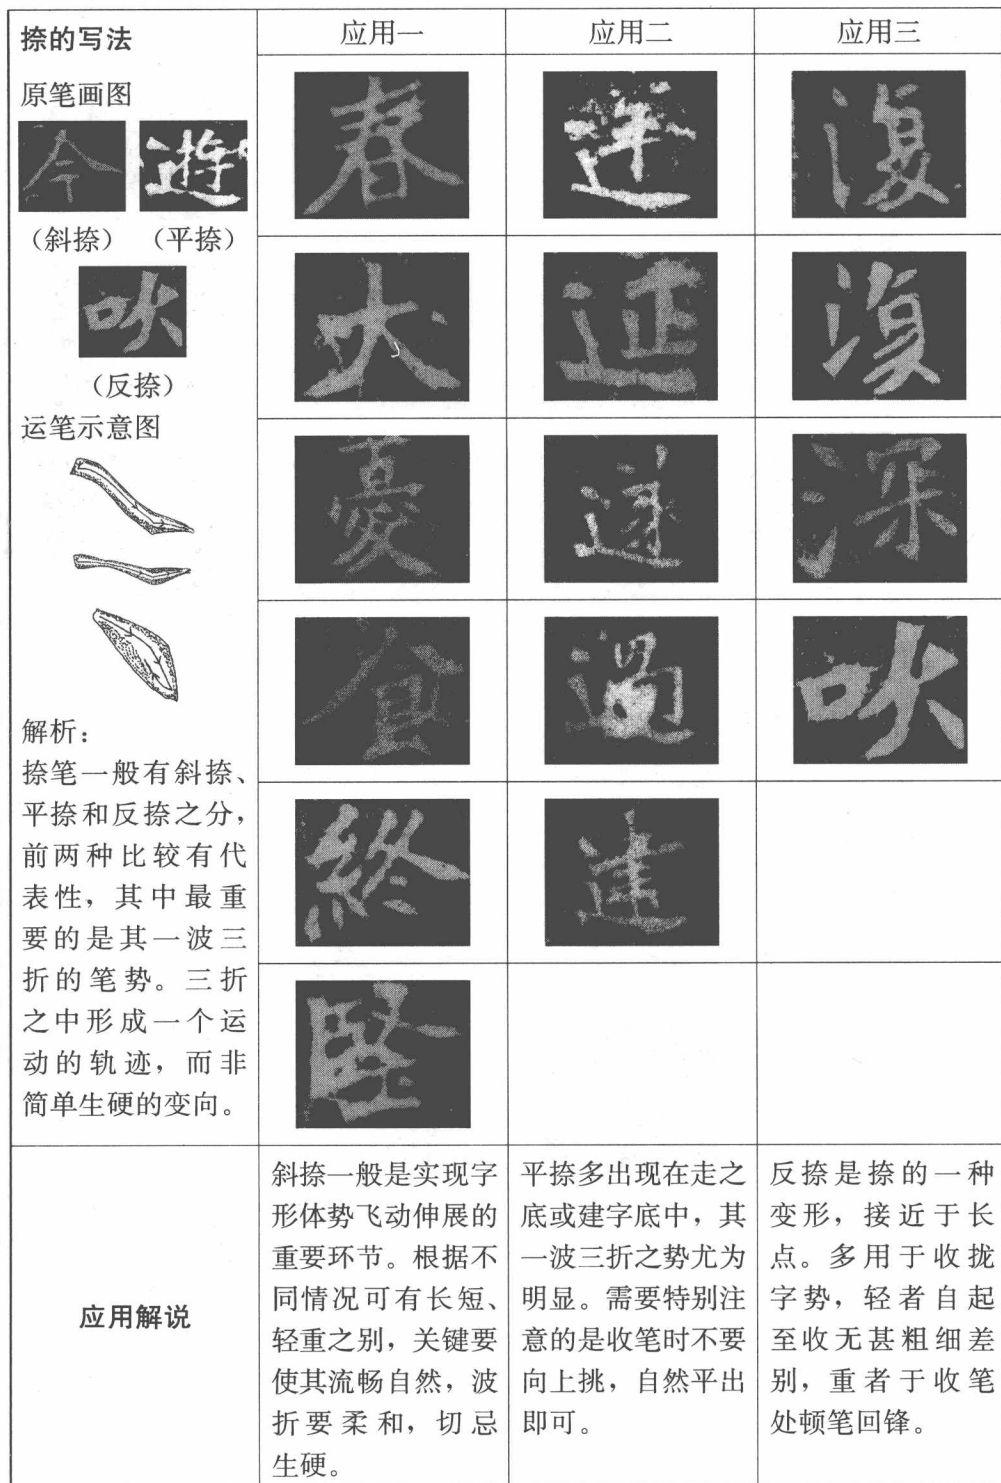 捺的写法
原笔画图
今 遊
（斜捺） （平捺）
吠
（反捺）
运笔示意图
解析：
捺笔一般有斜捺、
平捺和反捺之分，
前两种比较有代
表性，其中最重
要的是其一波三
折的笔势。三折
之中形成一个运
动的轨迹，而非
简单生硬的变向。
应用一 应用二 应用三
春
大
憂 深
食 過 吠
終 達
堅
应用解说
斜捺一般是实现字
形体势飞动伸展的
重要环节。根据不
同情况可有长短、
轻重之别，关键要
使其流畅自然，波
折要柔和，切忌
生硬。
平捺多出现在走之
底或建字底中，其
一波三折之势尤为
明显。需要特别注
意的是收笔时不要
向上挑，自然平出
即可。
反捺是捺的一种
变形，接近于长
点。多用于收拢
字势，轻者自起
至收无甚粗细差
别，重者于收笔
处顿笔回锋。